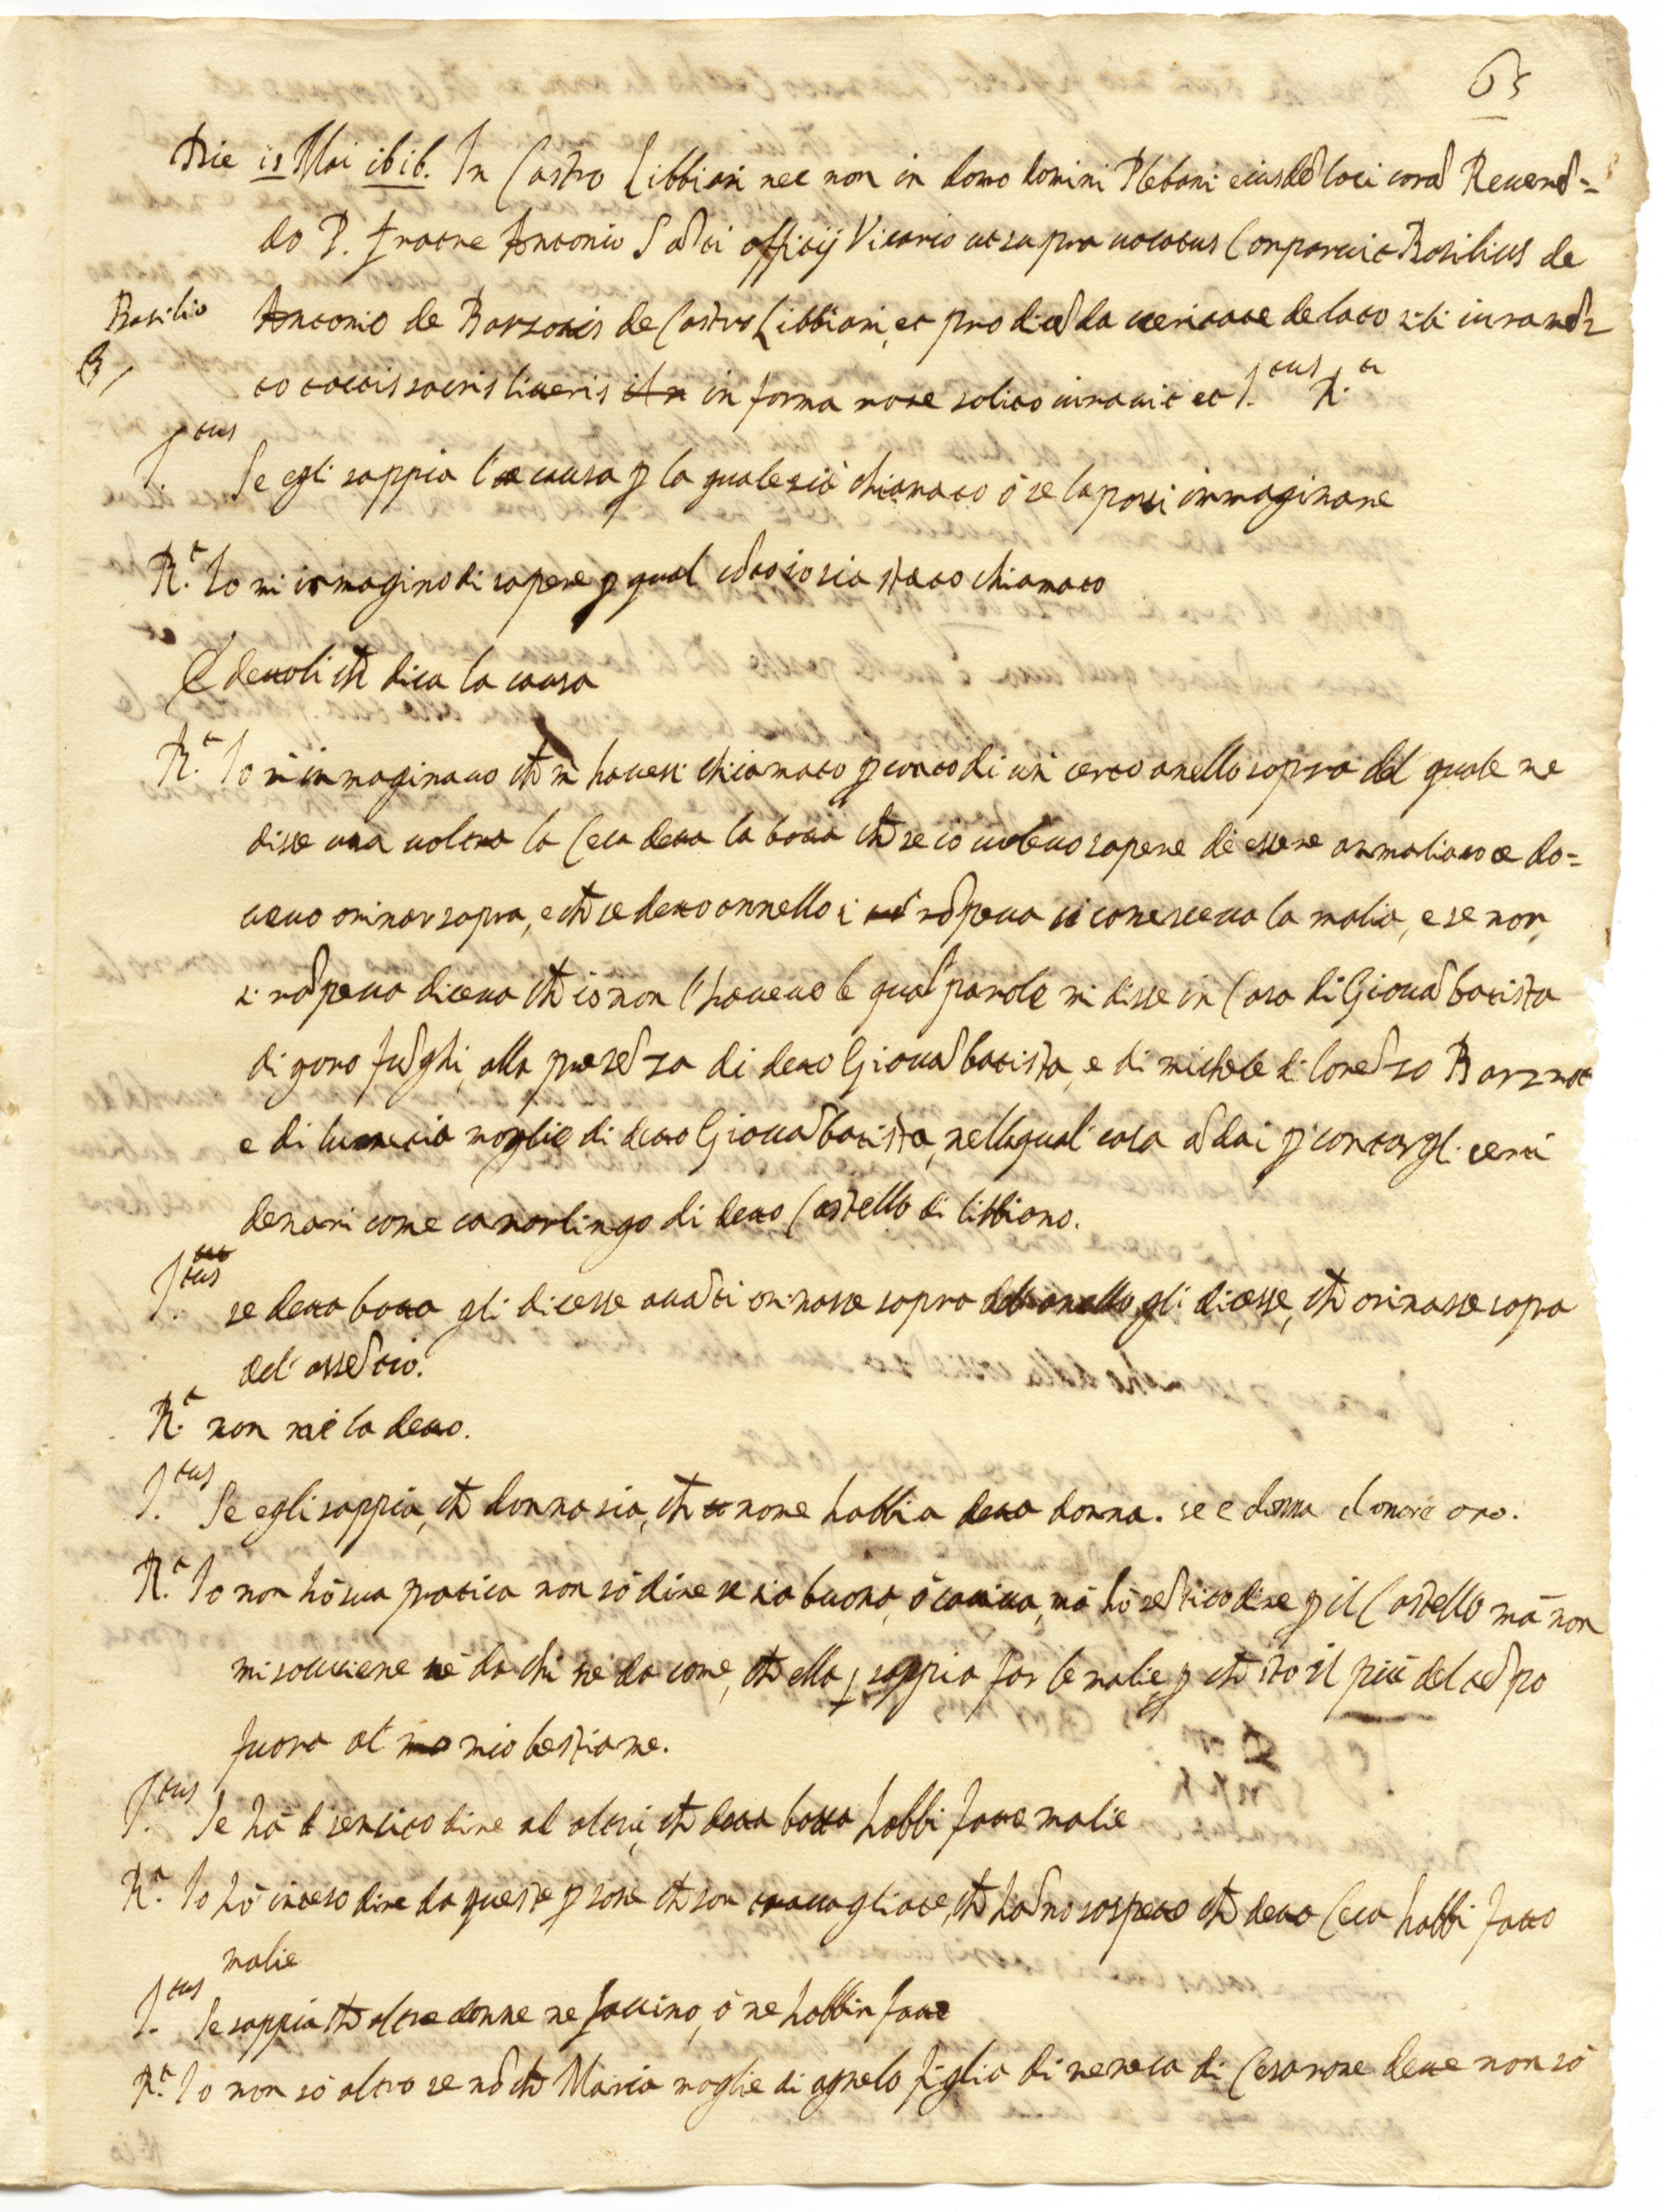 65
Die 18 Mai 1616. In Castro Libbiani nec non in domo domini Plebani eiusdē loci corā Reverē=
do P. fratre Antonio Sāᵗⁱ officij Vicario ut supra vocatus Comparuit Basilius de
Basilio
Antonio de Barzonis de Castro Libbiani, et pro dicēda veritate delato sibi iuramē
to tactis sacris literis in forma more solito iuravit et I.tus R.t
I.tus Se egli sappia la causa p la quale sia chiamato ò se la possi immaginare
R.t Io mi immagino di sapere p qual cōto io sia stato chiamato
E detoli chē dica la causa
R.t Io m immaginavo chē m havessi chiamato p conto di un certo anello sopra del quale me
disse una voltra la Ceca detta la botta chē se io volevo sapere di essere ammaliato e do=
vevo orinar sopra, e chē se detto annello si rōpeva si conesceva la malia, e se non
si rōpeva diceva chē io non l'havevo le quāl parole mi disse in Casa di Giovābatista
di goro fūghi, alla presēza di detto Giovābatista, e di michele di lorēzo
e di lucretia moglie di detto Giovābatista, nella qual casa ādai p contargli certi
denari come camarlingo di detto Castello di libbiano.
I.tus se detta botta gli dicesse avāti orinasse sopra del anello gli dicesse, chē orinasse sopra
del' assētio.
R.t non me la detto.
I.tus Se egli sappia, chē donna sia, chē nome habbia detta donna. se e donna d'onore o no.
R.t Io non hò sua pratica non sò dire se sia buona, ò cattiva, mà hò sētito dire p il Castello mà non
mi sovviene nè da chi nè da come, chē ella sappia far le malie, p chē sto il più del tēpo
fuora al mio bestiame.
I.tus Se hà sentito dire ad altri, chē detta botta habbi fatte malie
R.t Io hò inteso dire da queste psone chē son travagliate, chē hāno sospetto chē detta Ceca habbi fatto
malie
I.tus Se sappia chē altre donne ne faccino, ò ne habbin fatte
R.t Io non sò altro se nō chē Maria moglie di agnelo figlia di meneca di Cesarone dette non sò